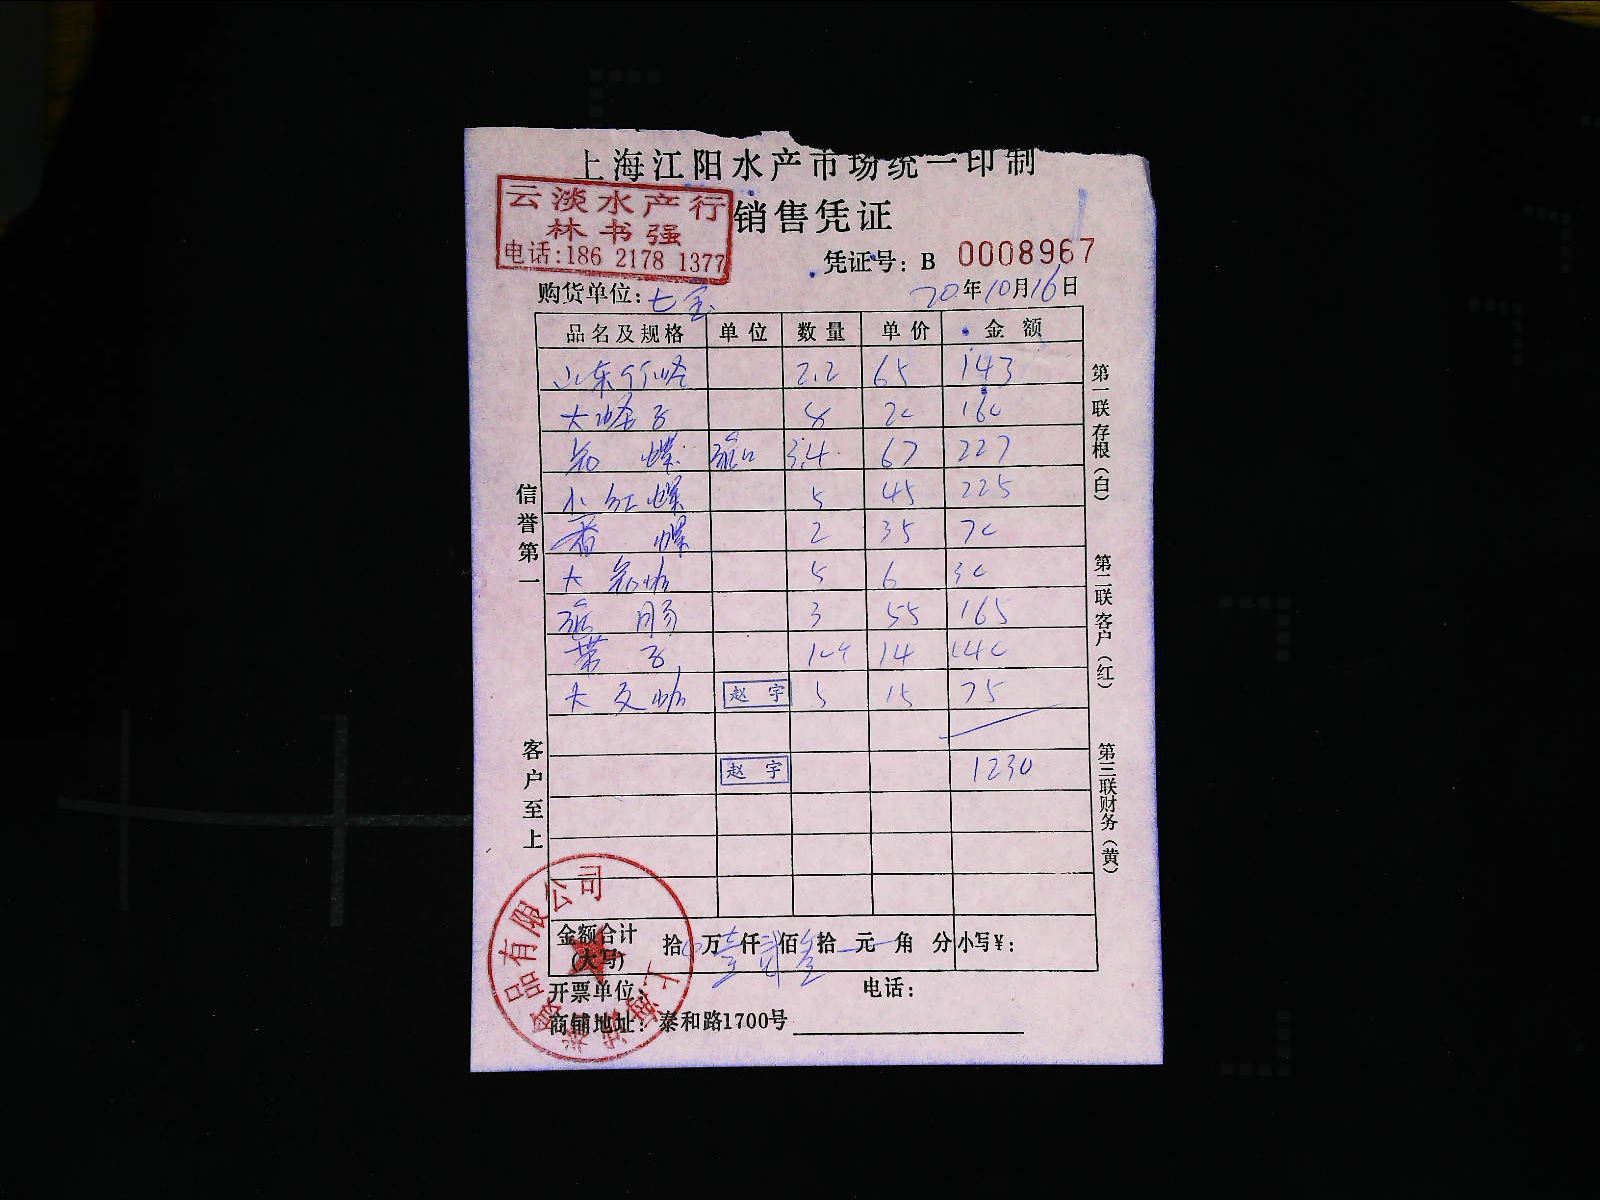 上海江阳水产市场统一印制
云淡水产行
林书强
电话:186 2178 1377
销售凭证
凭证号: B 0008967
购货单位: 七宝
20年10月16日
品名及规格 单位 数量 单价 金额
山东 2.2 65 143
大蛏子 8 20 160
螺 3.4 67 227
小红螺 5 45 225
香螺 2 35 70
大 蛤 5 6 30
肠 3 55 165
带子 14 140
大文蛤 赵宇 5 15 75
赵宇 1230
金额合计(大写) 拾 万壹仟贰佰叁拾 元 角 分 小写¥:
开票单位: 电话:
商铺地址: 泰和路1700号
信誉第一
客户至上
第一联存根(白)
第二联客户(红)
第三联财务(黄)
品有限公司
上海